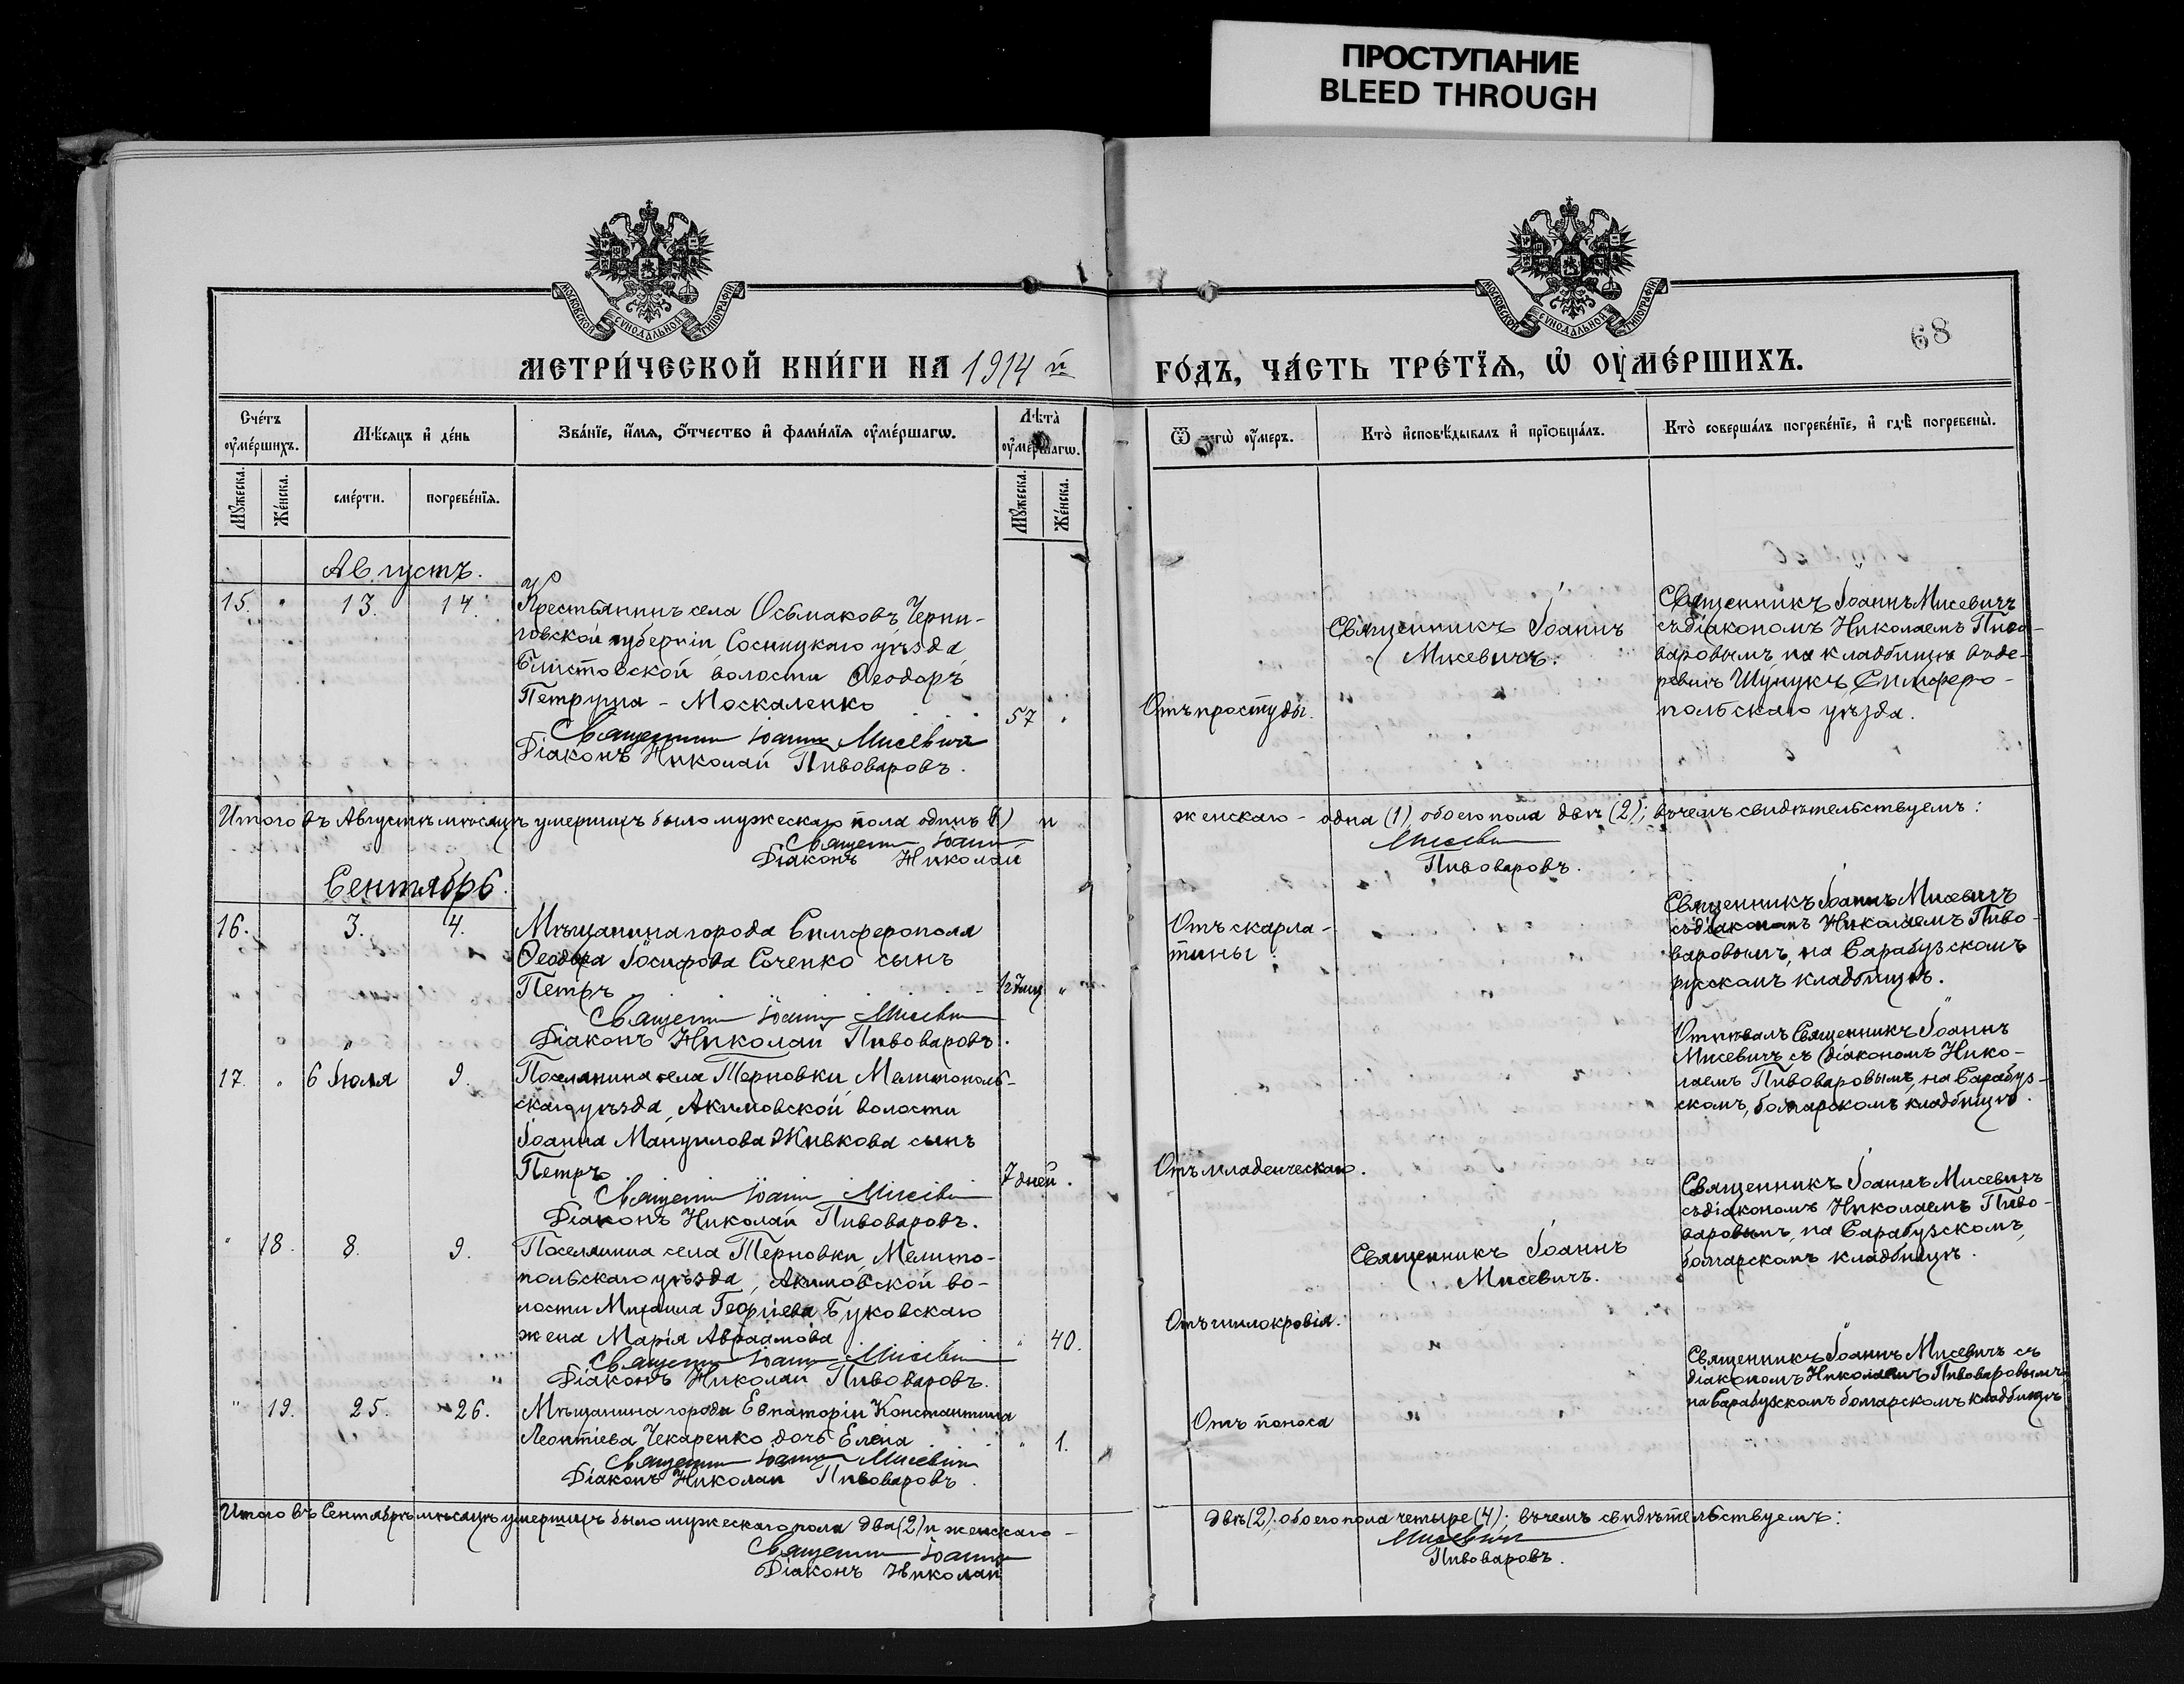 ПРОСТУПАНИЕ
BLEED THROUGH
МОСКОВСКОЙ СѴНОДАЛЬНОЙ ТИПОГРАФІИ
МОСКОВСКОЙ СѴНОДАЛЬНОЙ ТИПОГРАФІИ
68
МЕТРИ́ЧЕСКОЙ КНИ́ГИ НА 1914 й
ГО́ДЪ, ЧА́СТЬ ТРЕ́ТЇѦ, Ѡ҆ ОУ҆МЕ́РШИХЪ.
Сче́тъ оу҆ме́ршихъ.
Мѣ́сяцъ и҆ де́нь
Зва́нїе, и҆́мя, ѻ҆́тчество и҆ фами́лїя оу҆ме́ршагѡ.
Лѣта̀ оу҆ме́ршагѡ.
Ѿ чегѡ̀ оу҆́меръ.
Кто̀ и҆сповѣ́дывалъ и҆ прїѡбща́лъ.
Кто̀ соверша́лъ погребе́нїе, и҆ гдѣ̀ погребены̀.
Мꙋ́жеска.
Же́нска.
сме́рти.
погребе́нїя.
Мꙋ́жеска.
Же́нска.
Августъ.
15. " 13. 14.
Крестьянинъ села Осьмаковъ Черни-
говской губерніи Сосницкаго уѣзда
Блистовской волости Ѳеодоръ
Петруша - Москаленко
57 "
Священникъ Іоаннъ Мисевичъ
Діаконъ Николай Пивоваровъ.
Отъ простуды.
Священникъ Іоаннъ
Мисевичъ.
Священникъ Іоаннъ Мисевичъ
съ діакономъ Николаемъ Пиво-
варовымъ, на кладбищѣ въ де-
ревнѣ Шунукъ Симферо-
польскаго уѣзда.
Итого въ Августѣ мѣсяцѣ умершихъ было мужескаго пола одинъ (1) и
женскаго - одна (1), обоего пола двѣ (2); въ чемъ свидѣтельствуемъ:
Священникъ Іоаннъ
Мисевичъ
Діаконъ Николай
Пивоваровъ.
Сентябрь.
16. 3. 4.
Мѣщанина города Симферополя
Ѳеодора Іосифова Саченко сынъ
Петръ
"
Священникъ Іоаннъ Мисевичъ
Діаконъ Николай Пивоваровъ.
Отъ скарла-
тины.
Священникъ Іоаннъ Мисевичъ
съ діакономъ Николаемъ Пиво-
варовымъ, на Сарабузскомъ
русскомъ кладбищѣ.
17. " 6 Іюля 9.
Поселянина села Терновки Мелитополь-
скаго уѣзда, Акимовской волости
Іоанна Мануилова Живкова сынъ
Петръ
7 дней.
Священникъ Іоаннъ Мисевичъ
Діаконъ Николай Пивоваровъ.
Отъ младенческаго.
Отпѣвалъ Священникъ Іоаннъ
Мисевичъ съ діакономъ Нико-
лаемъ Пивоваровымъ, на Сарабуз-
скомъ, болгарскомъ кладбищѣ.
" 18. 8. 9.
Поселянина села Терновки, Мелито-
польскаго уѣзда, Акимовской во-
лости Михаила Георгіева Буковскаго
жена Марія Авраамова
" 40.
Священникъ Іоаннъ Мисевичъ
Діаконъ Николай Пивоваровъ.
Отъ гнилокровія.
Священникъ Іоаннъ
Мисевичъ.
Священникъ Іоаннъ Мисевичъ
съ діакономъ Николаемъ Пиво-
варовымъ, на Сарабузскомъ,
болгарскомъ кладбищѣ.
" 19. 25. 26.
Мѣщанина города Евпаторіи Константина
Леонтіева Чекаренко дочь Елена
" 1.
Священникъ Іоаннъ Мисевичъ
Діаконъ Николай Пивоваровъ.
Отъ поноса
Священникъ Іоаннъ Мисевичъ съ
діакономъ Николаемъ Пивоваровымъ
на Сарабузскомъ болгарскомъ кладбищѣ
Итого въ Сентябрѣ мѣсяцѣ умершихъ было мужескаго пола два (2) и женскаго -
двѣ (2); обоего пола четыре (4); въ чемъ свидѣтельствуемъ:
Священникъ Іоаннъ
Мисевичъ
Діаконъ Николай
Пивоваровъ.